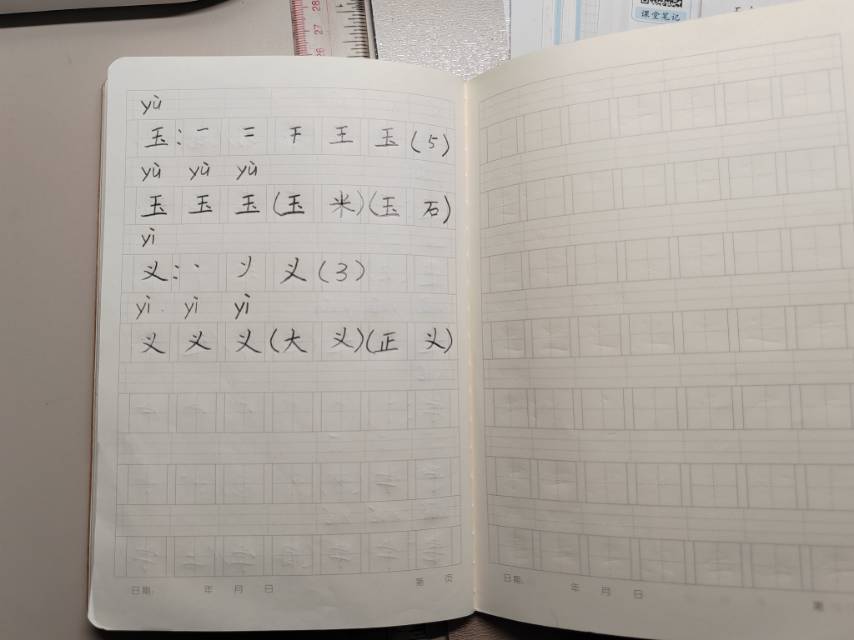 28
27
26
课堂笔记
yù
玉：一 二 干 王 玉（5）
yù yù yù
玉 玉 玉（玉 米）（玉 石）
yì
义：丶 丷 义（3）
yì yì yì
义 义 义（大 义）（正 义）
日期： 年 月 日 第 页
日期： 年 月 日 第